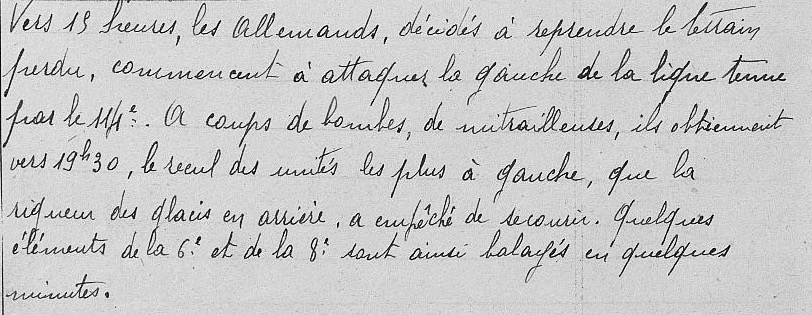 Vers 19 heures, les Allemands, décidés à reprendre le terrain
perdu, commencent à attaquer la gauche de la ligne tenue
par le 114e. A coups de bombes, de mitrailleuses, ils obtiennent
vers 19h30, le recul des unités les plus à gauche, que la
rigueur des glacis en arrière, a empêché de secourir. Quelques
éléments de la 6e et de la 8e sont ainsi balayés en quelques
minutes.